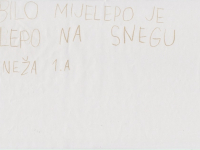 BILO MIJELEPO JE
LEPO NA SNEGU
NEŽA 1A